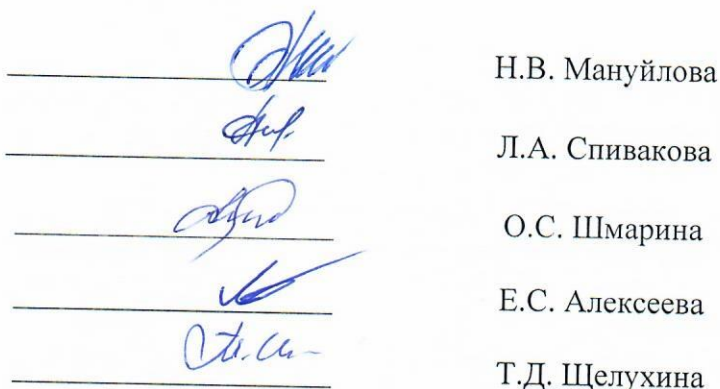 Н.В. Мануйлова
Л.А. Спивакова
О.С. Шмарина
Е.С. Алексеева
Т.Д. Щелухина